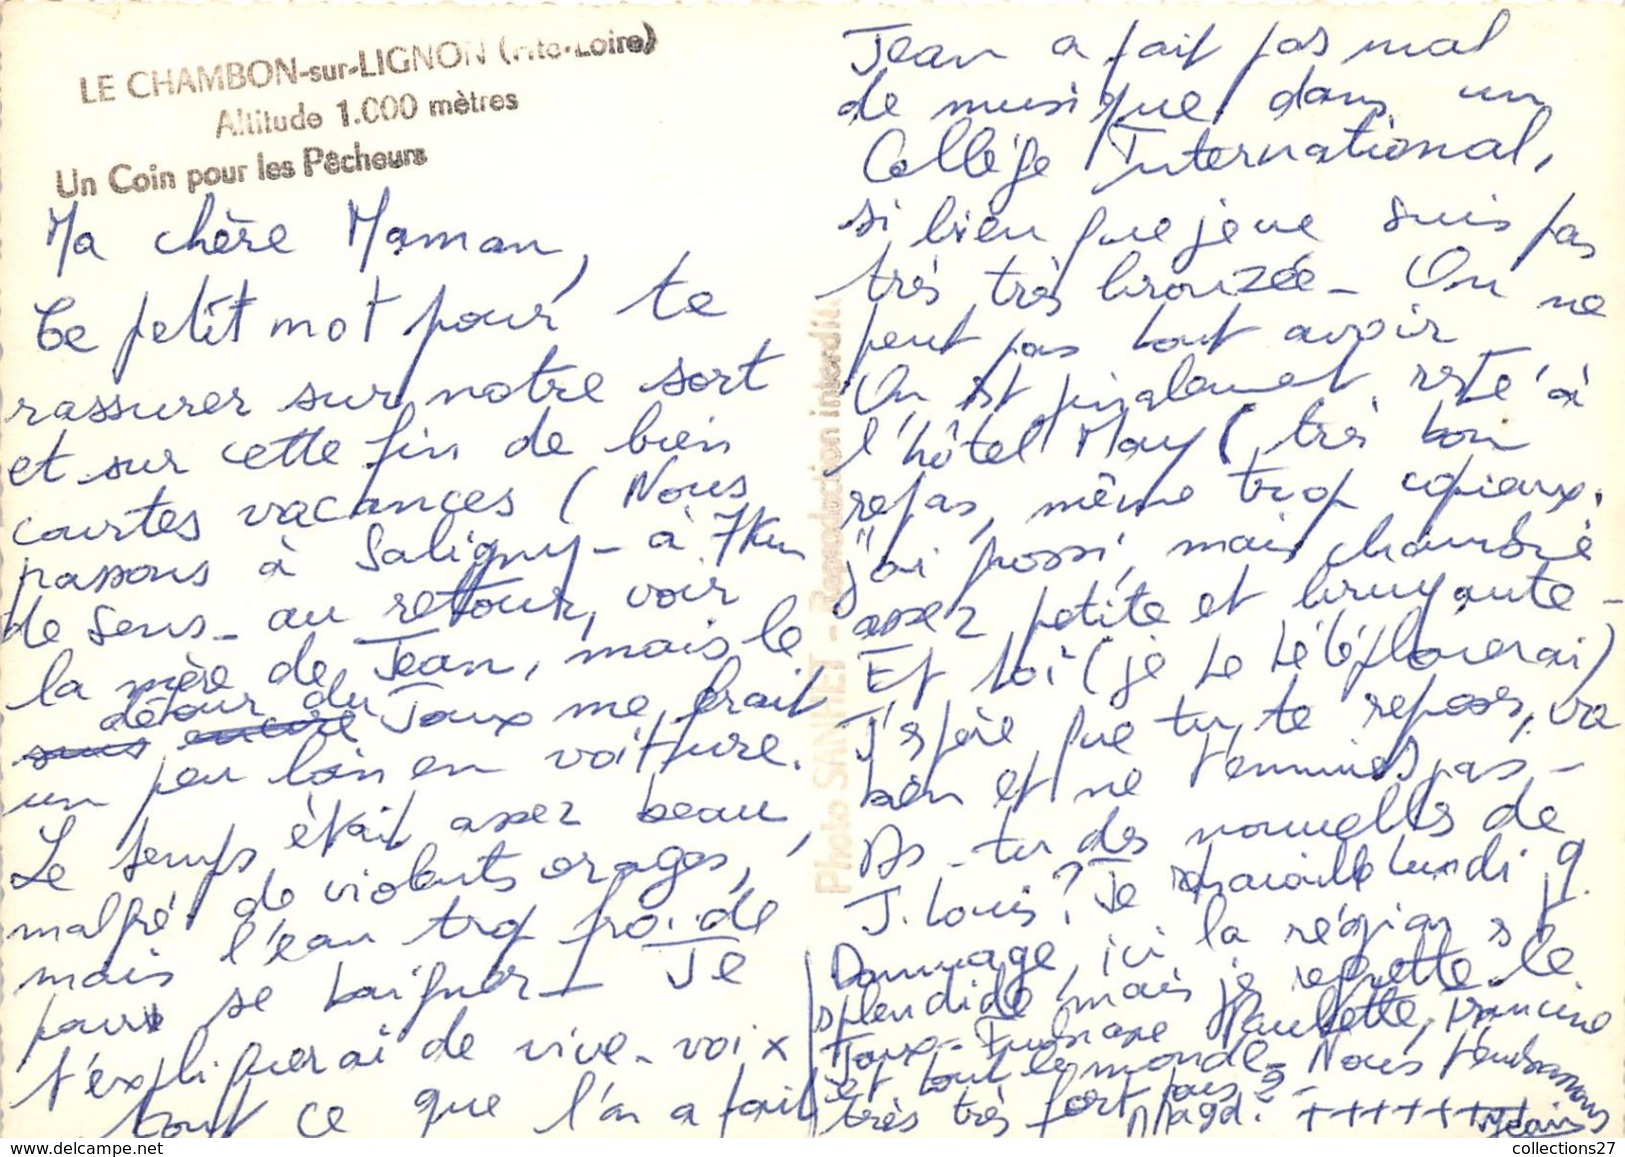 LE CHAMBON-sur-LIGNON (Hte-Loire)
Altitude 1.000 mètres
Un Coin pour les Pêcheurs
Ma chère Maman,
Ce petit mot pour te
rassurer sur notre sort
et sur cette fin de bien
courtes vacances ( Nous
passons à Saligny - à 7 Km
de Sens - au retour, voir
la mère de Jean, mais le
détour du
Joux me ferait
un peu loin en voiture.
Le temps était assez beau,
malgré de violents orages,
mais l'eau trop froide
pour se baigner - Je
t'expliquerai de vive-voix
tout ce que l'on a fait
Jean a fait pas mal
de musique dans un
Collège International,
si bien que je ne suis pas
très très bronzée - On ne
peut pas tout avoir
On est finalement resté à
l'hôtel May ( très bon
repas, même trop copieux,
j'ai grossi, mais chambre
assez petite et bruyante -
Et toi ( je te téléphonerai)
J'espère que tu te reposes, va
bien et ne t'ennuies pas -
As-tu des nouvelles de
J. Louis ? Je travaille Lundi 9.
Dommage, ici la région est
splendide mais je regrette le
Joux - Embrasse Paulette, Francine
et tout le monde - Nous t'embrassons
très très fort
Magd. +++++++ Jean
Photo SANNET - Reproduction interdite
collections27